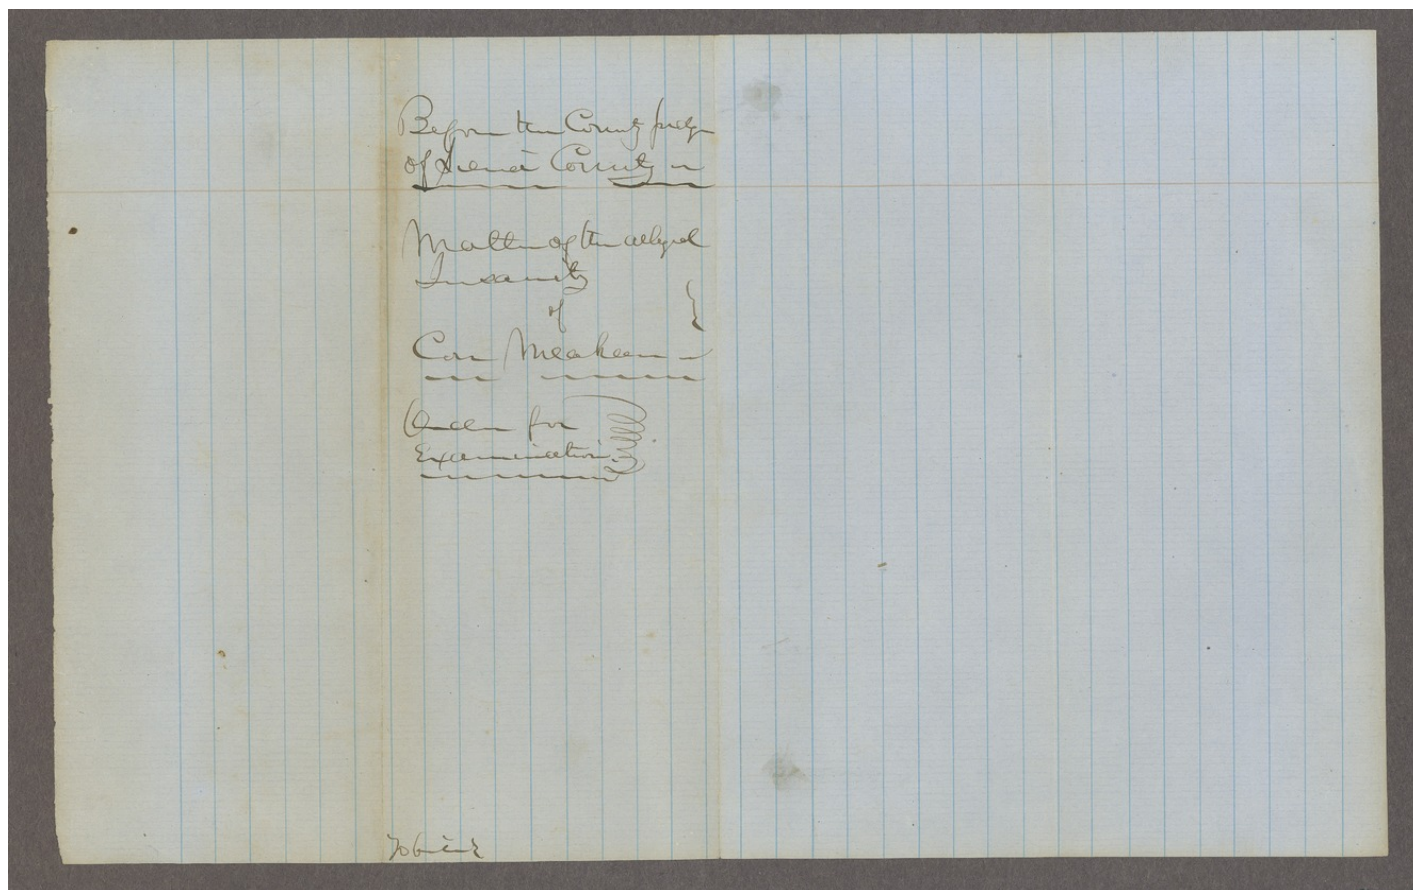 Before the County Judge
of Sierra County
Matter of the alleged
Insanity
of
Con Meaheen
Order for
Examination